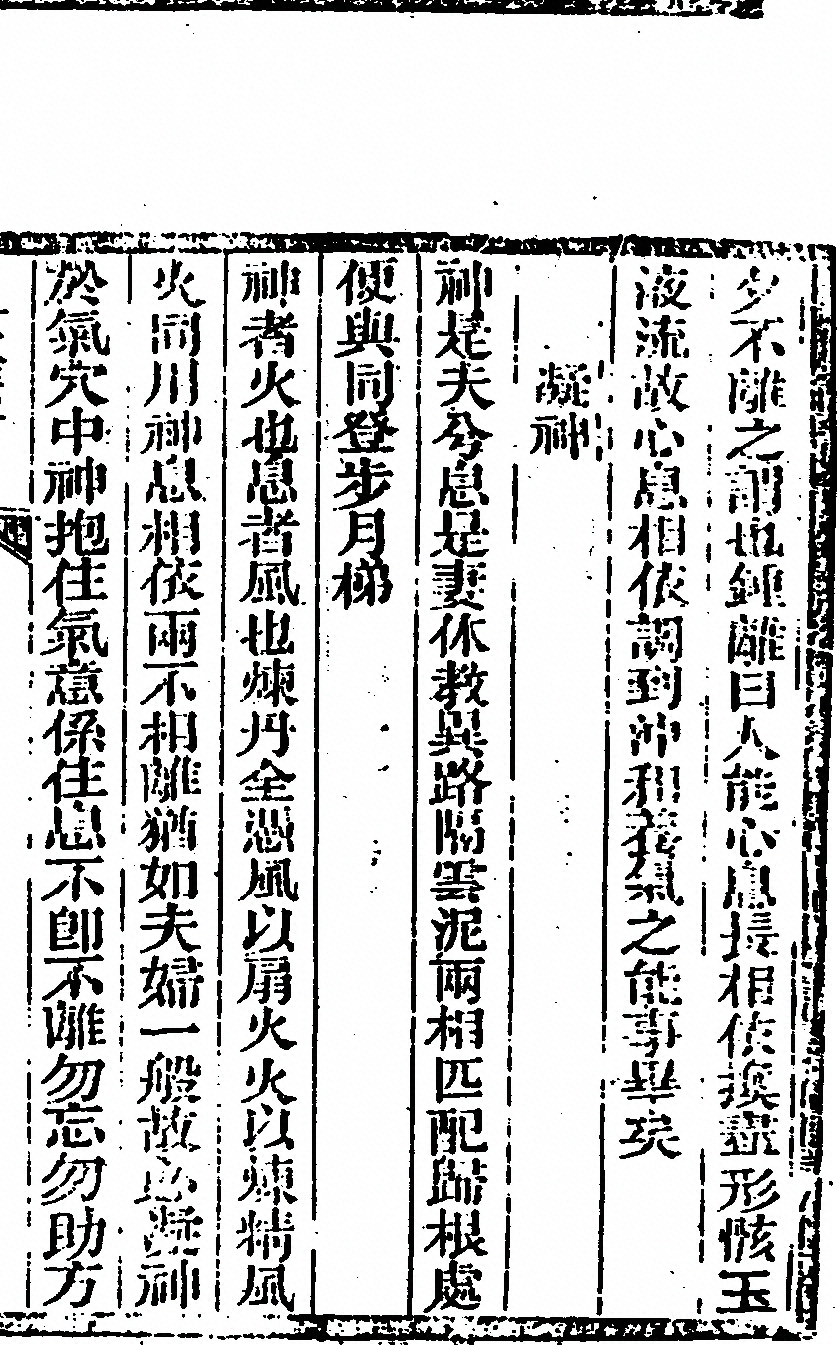 夕不離之謂也鍾離曰人能心息長相依換盡形骸玉
液流故心息相依調到沖和養氣之能事畢矣
凝神
神是夫兮息是妻休教異路隔雲泥兩相匹配歸根處
便與同登步月梯
神者火也息者風也煉丹全憑風以扇火火以煉精風
火同用神息相依兩不相離猶如夫婦一般故必凝神
於氣穴中神抱住氣意係住息不即不離勿忘勿助方